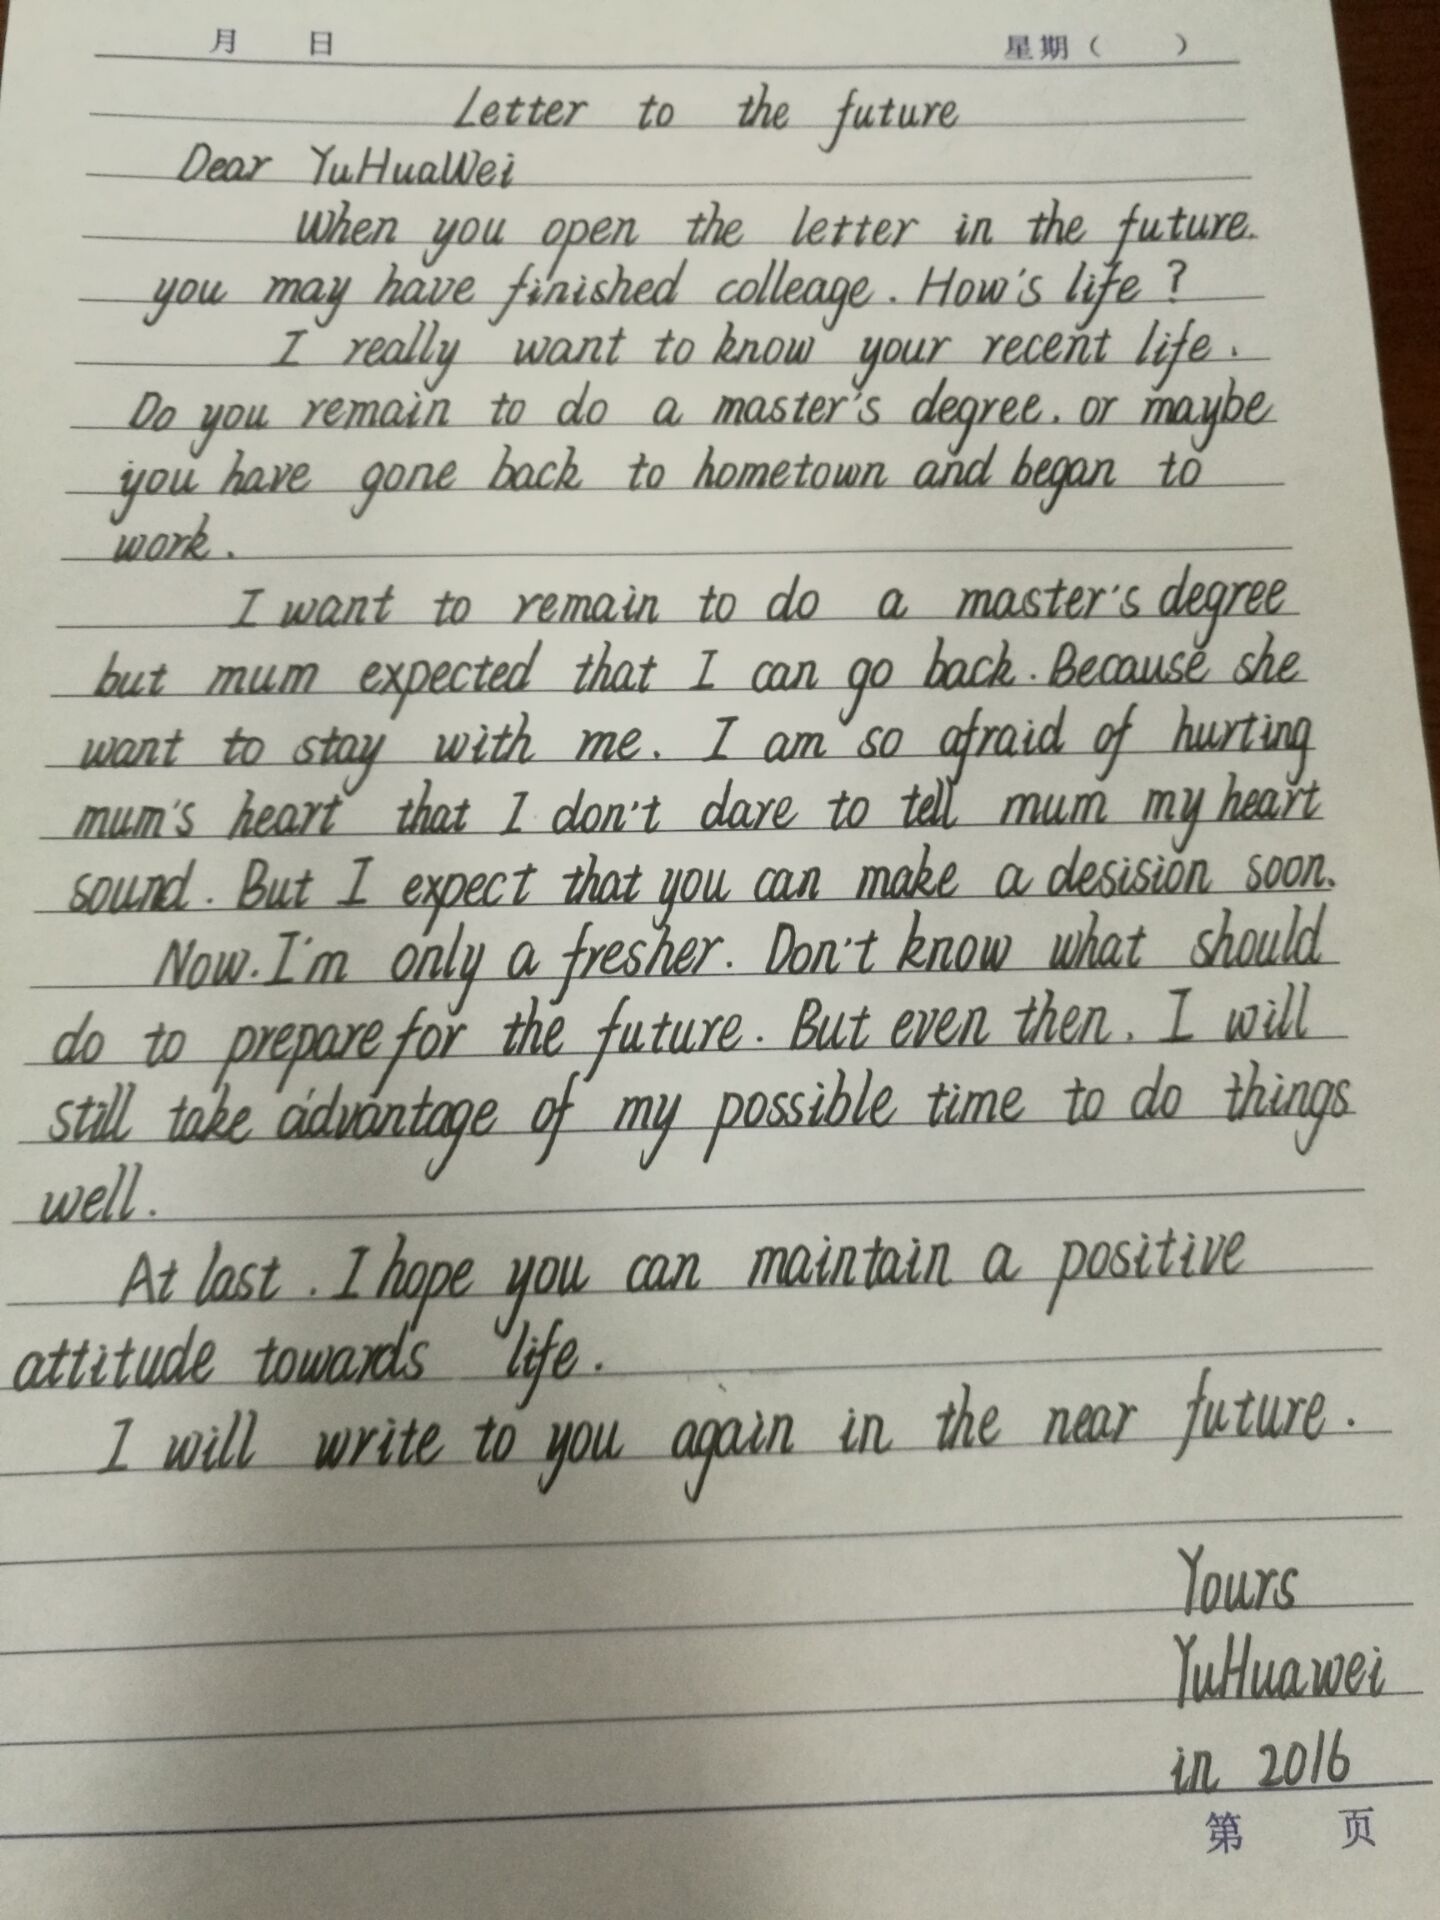 月 日 星期( )
Letter to the future
Dear YuHuaWei
When you open the letter in the future.
you may have finished colleage. How's life?
I really want to know your recent life.
Do you remain to do a master's degree. or maybe
you have gone back to hometown and began to
work.
I want to remain to do a master's degree
but mum expected that I can go back. Because she
want to stay with me. I am so afraid of hurting
mum's heart that I don't dare to tell mum my heart
sound. But I expect that you can make a desision soon.
Now. I'm only a fresher. Don't know what should
do to prepare for the future. But even then. I will
still take advantage of my possible time to do things
well.
At last. I hope you can maintain a positive
attitude towards life.
I will write to you again in the near future.
Yours
YuHuawei
in 2016
第 页